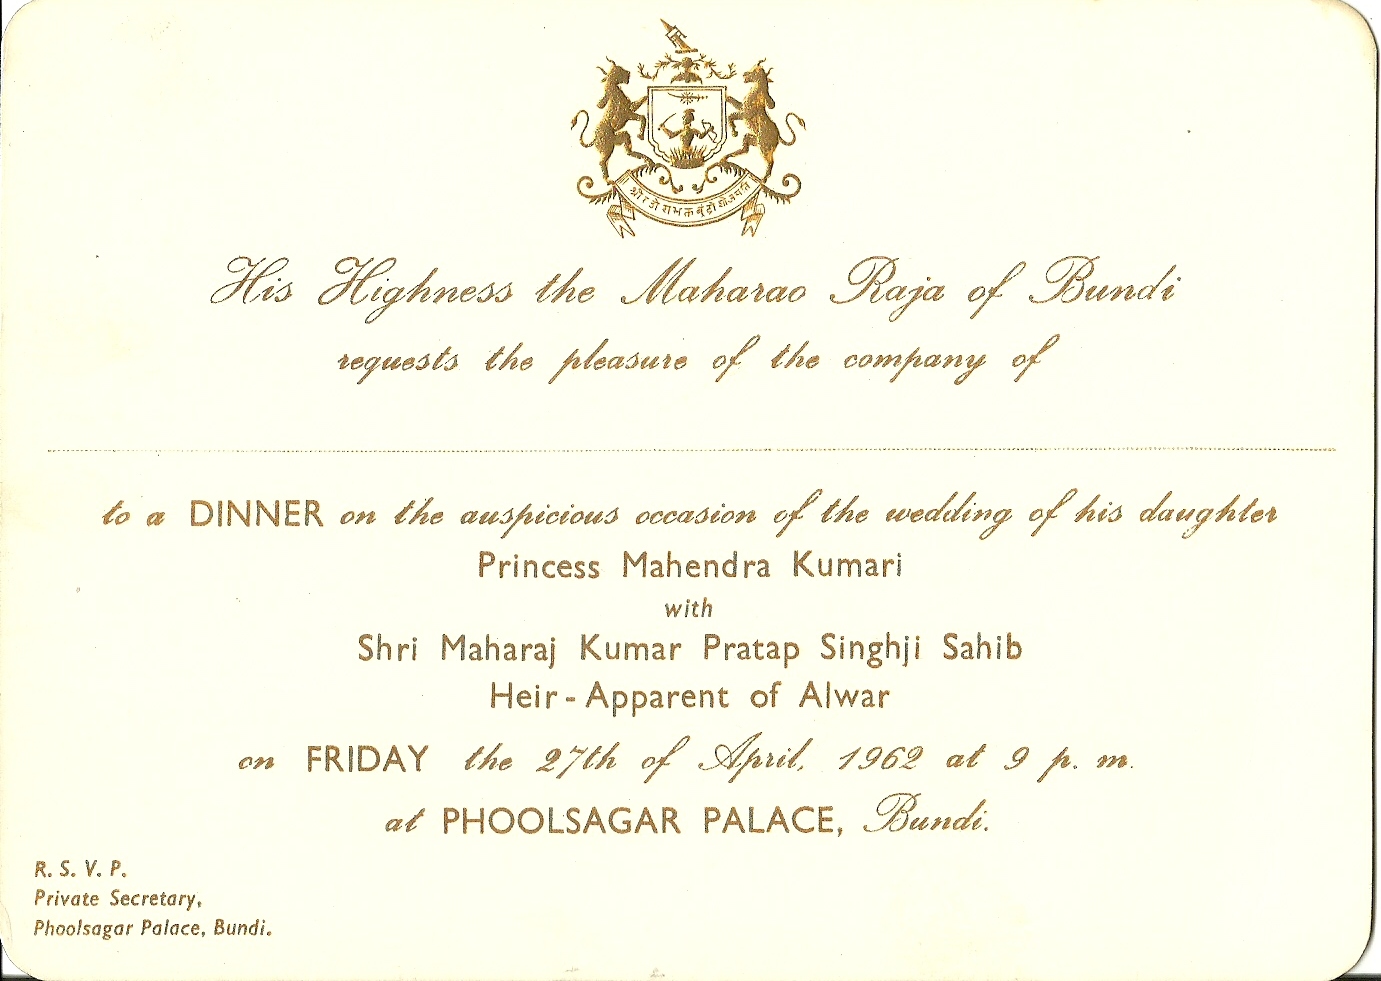 His Highness the Maharao Raja of Bundi
requests the pleasure of the company of
to a DINNER on the auspicious occasion of the wedding of his daughter
Princess Mahendra Kumari
with
Shri Maharaj Kumar Pratap Singhji Sahib
Heir-Apparent of Alwar
on FRIDAY the 27th of April, 1962 at 9 p. m.
at PHOOLSAGAR PALACE, Bundi.
R. S. V. P.
Private Secretary,
Phoolsagar Palace, Bundi.